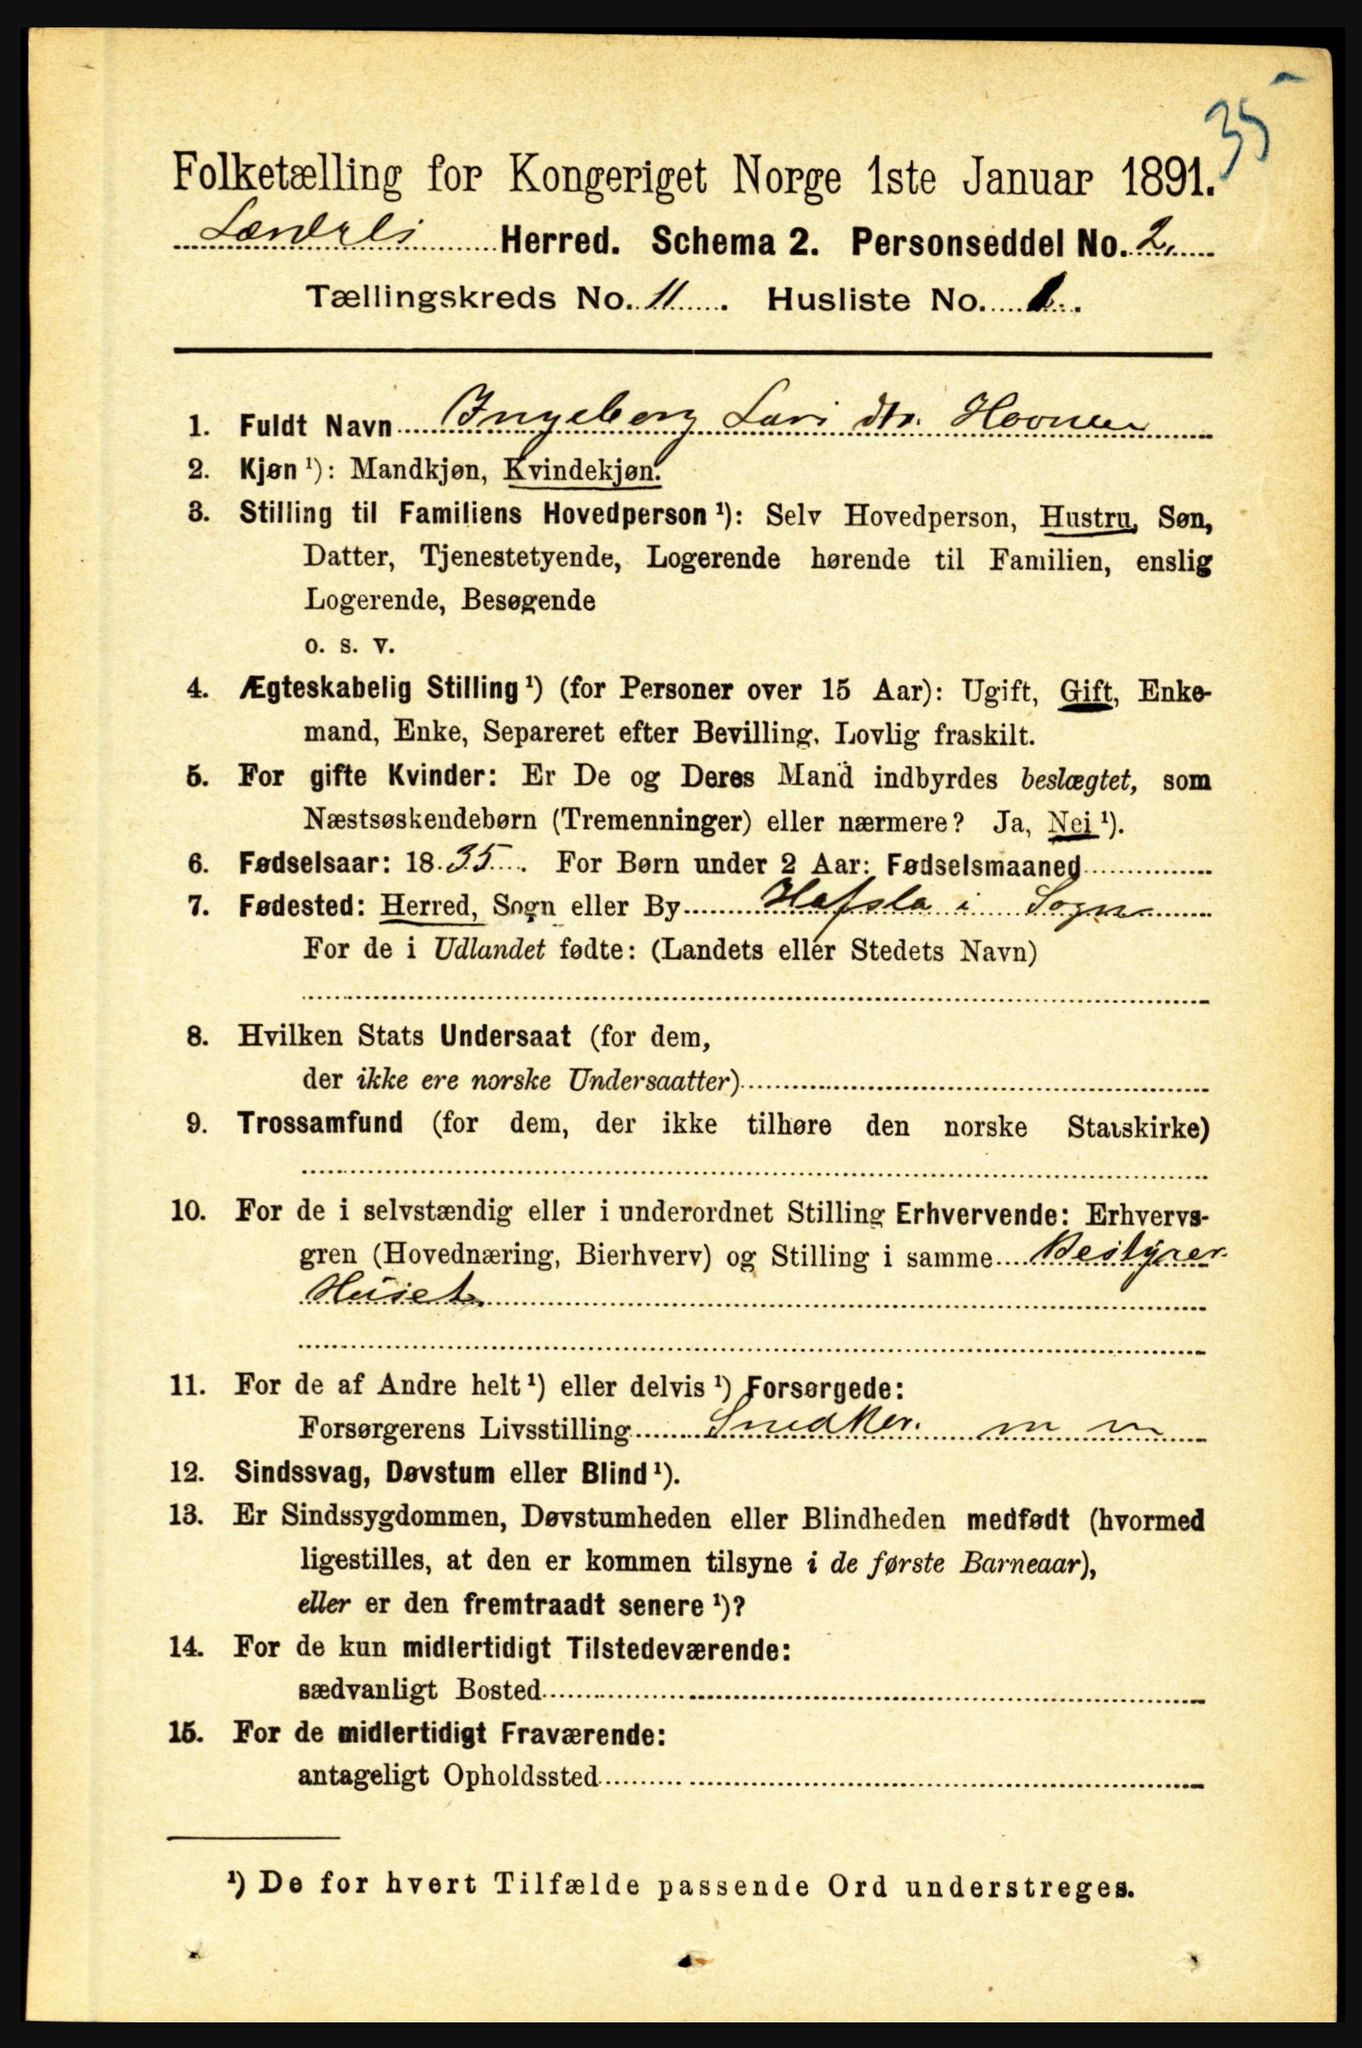 35
Folketælling for Kongeriget Norge 1ste Januar 1891.
Herred. Schema 2. Personseddel No. 2.
Tællingskreds No. 11. Husliste No. 1.
1. Fuldt Navn Ingeborg Lars dtr. Hovnen
2. Kjøn ¹): Mandkjøn, Kvindekjøn.
3. Stilling til Familiens Hovedperson ¹): Selv Hovedperson, Hustru, Søn,
Datter, Tjenestetyende, Logerende hørende til Familien, enslig
Logerende, Besøgende
o. s. v.
4. Ægteskabelig Stilling ¹) (for Personer over 15 Aar): Ugift, Gift, Enke-
mand, Enke, Separeret efter Bevilling, Lovlig fraskilt.
5. For gifte Kvinder: Er De og Deres Mand indbyrdes beslægtet, som
Næstsøskendebørn (Tremenninger) eller nærmere? Ja, Nei ¹).
6. Fødselsaar: 1835. For Børn under 2 Aar: Fødselsmaaned
7. Fødested: Herred, Sogn eller By Hafslo i Sogn
For de i Udlandet fødte: (Landets eller Stedets Navn)
8. Hvilken Stats Undersaat (for dem,
der ikke ere norske Undersaatter)
9. Trossamfund (for dem, der ikke tilhøre den norske Statskirke)
10. For de i selvstændig eller i underordnet Stilling Erhvervende: Erhvervs-
gren (Hovednæring, Bierhverv) og Stilling i samme Bestyrer
Huset
11. For de af Andre helt ¹) eller delvis ¹) Forsørgede:
Forsørgerens Livsstilling Snedker m m
12. Sindssvag, Døvstum eller Blind ¹).
13. Er Sindssygdommen, Døvstumheden eller Blindheden medfødt (hvormed
ligestilles, at den er kommen tilsyne i de første Barneaar),
eller er den fremtraadt senere ¹)?
14. For de kun midlertidigt Tilstedeværende:
sædvanligt Bosted
15. For de midlertidigt Fraværende:
antageligt Opholdssted
¹) De for hvert Tilfælde passende Ord understreges.